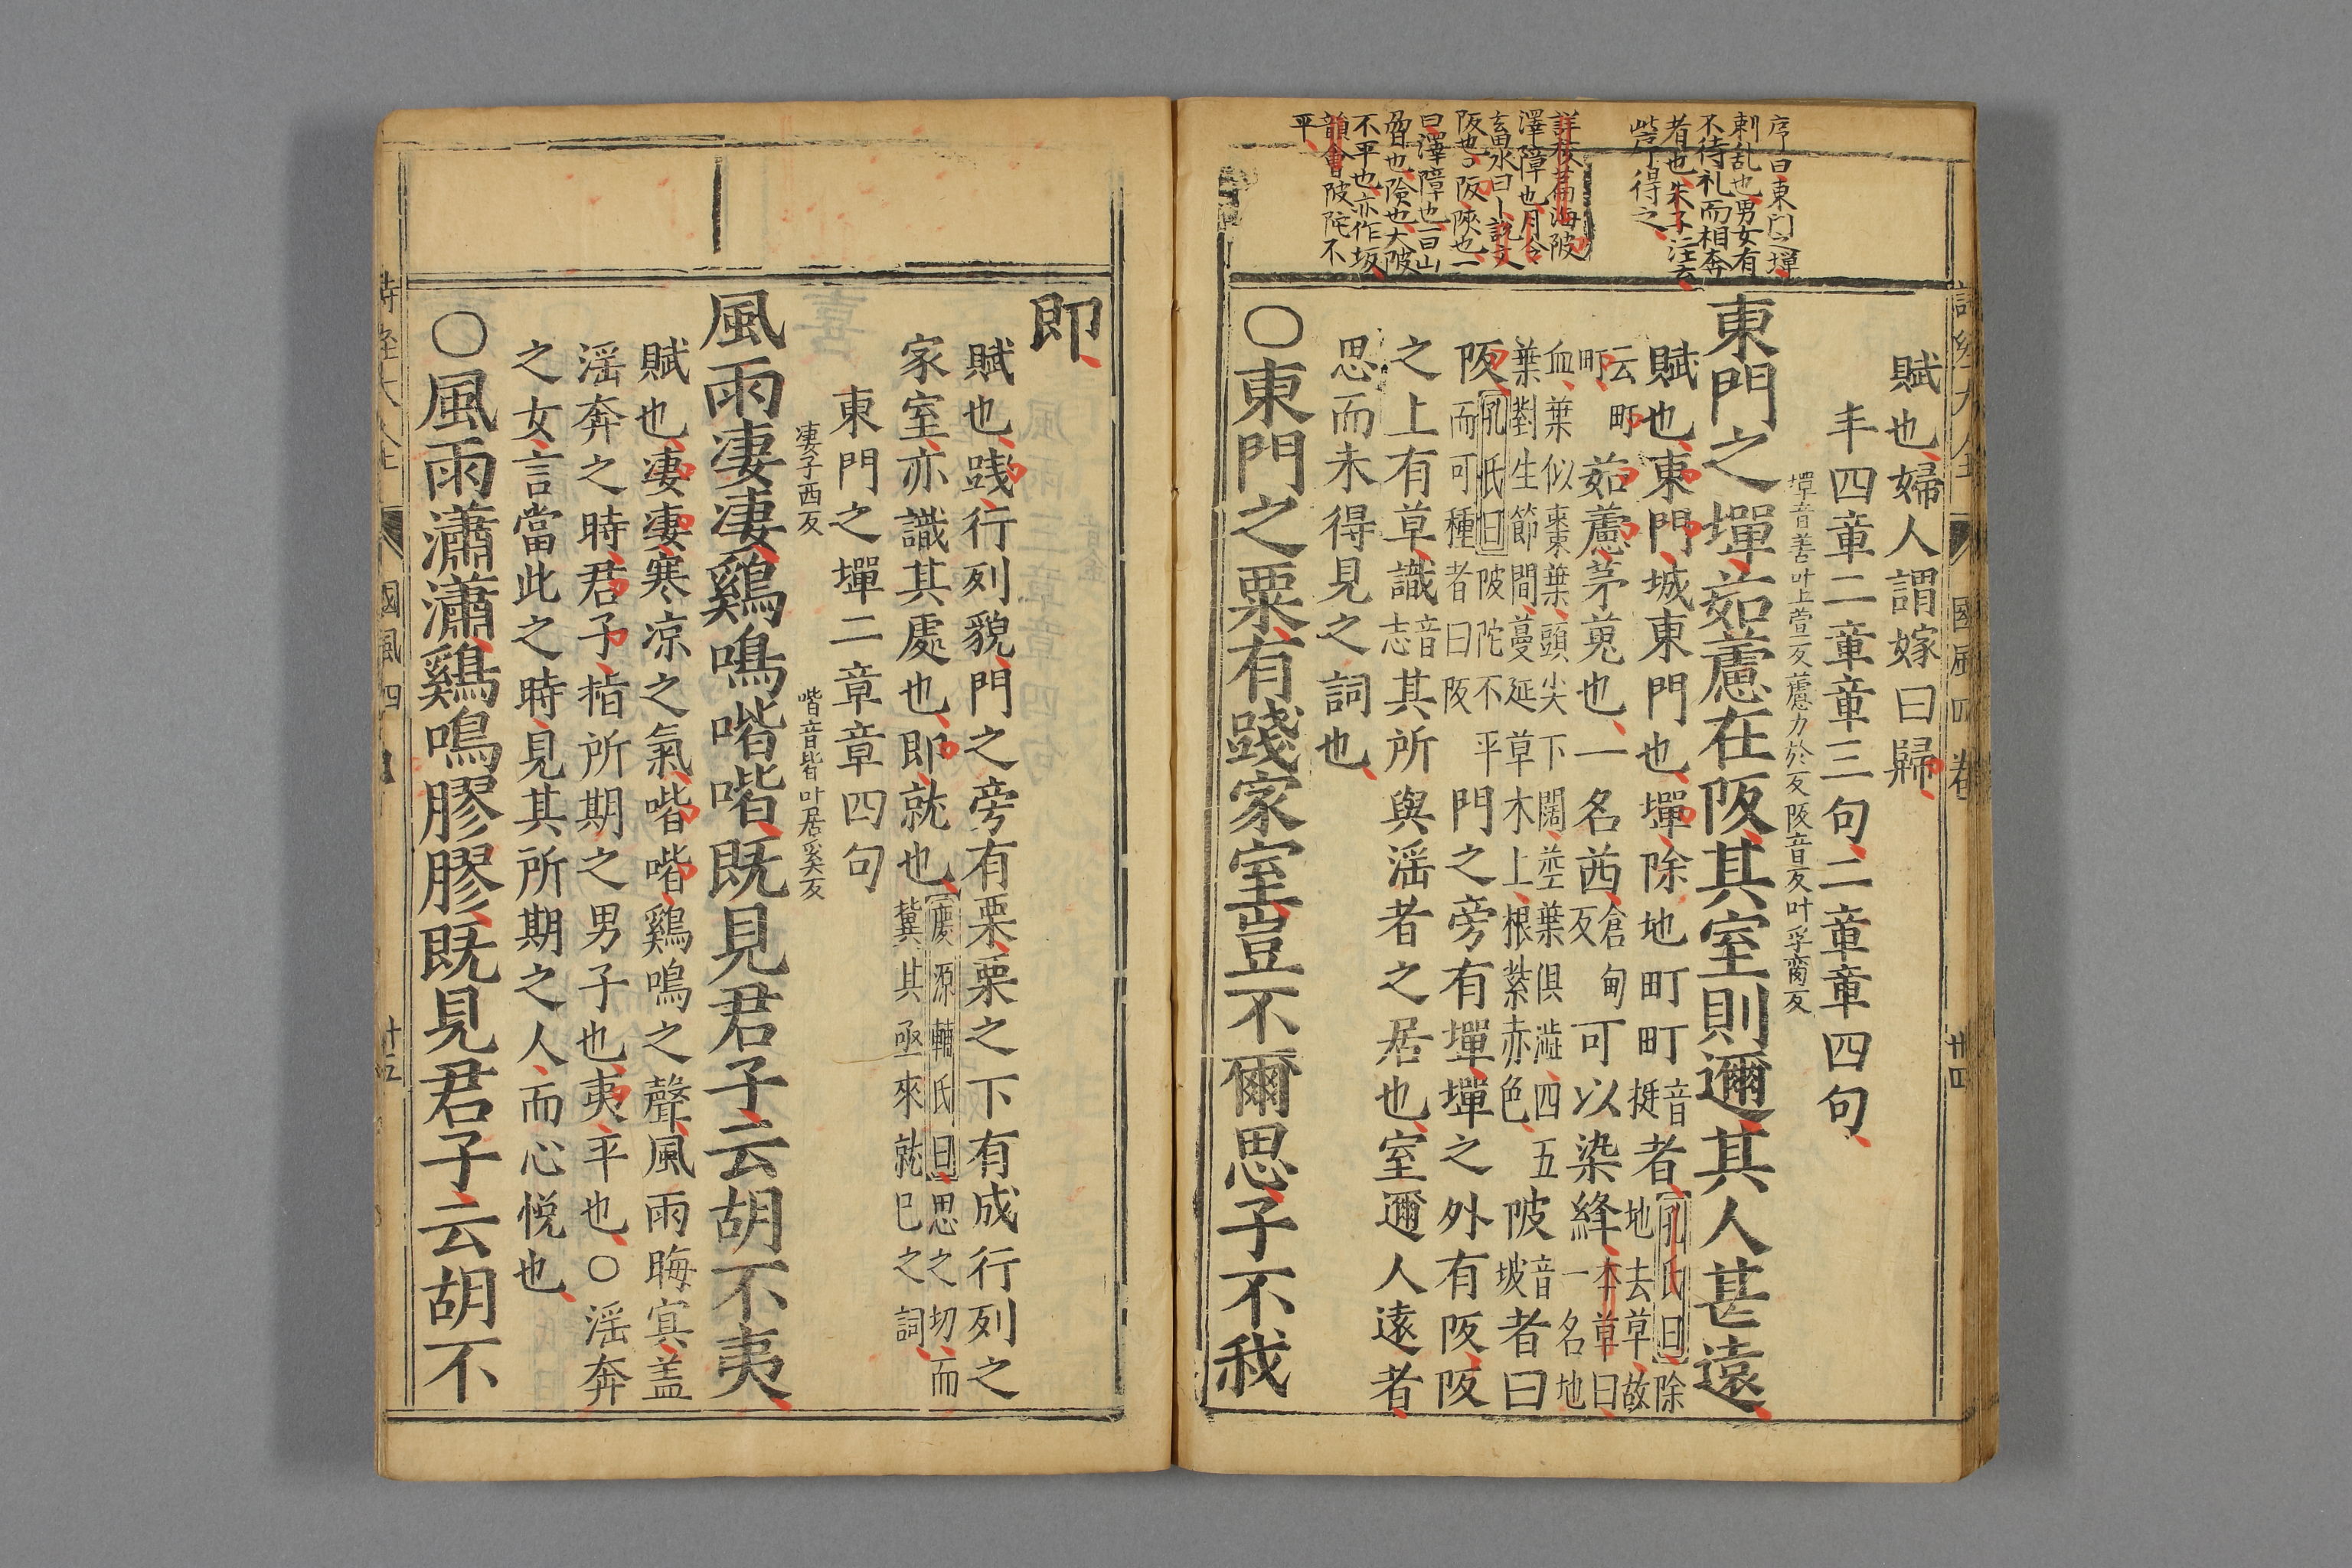 序曰東门之墠
刺乱也男女有
不待礼而相奔
者也朱子注云
此序得之
詳校篇海陂
澤障也月令
畜水曰丨説文
阪也阪陝也一
曰澤障也一曰山
脅也険也大陂
不平也亦作坂
韻會陂陀不
平
賦也婦人謂嫁曰歸
丰四章二章章三句二章章四句
墠音善叶上萱反藘力於反阪音反叶孚臠反
東門之墠茹藘在阪其室則邇其人甚遠
賦也東門城東門也墠除地町町音挺者孔氏曰除地去草故
云町町茹藘茅蒐也一名茜倉甸反可以染絳本草曰一名地
血葉似棗葉頭尖下闊莖葉俱澁四五葉對生節間蔓延草木上根紫赤色陂音坡者曰
阪孔氏曰陂陀不平而可種者曰阪門之旁有墠墠之外有阪阪
之上有草識音志其所與淫者之居也室邇人遠者
思而未得見之詞也
○東門之栗有踐家室豈不爾思子不我
國風四卷
廿四
即
賦也踐行列貌門之旁有栗栗之下有成行列之
家室亦識其處也即就也慶源輔氏曰思之切而冀其亟來就已之詞
東門之墠二章章四句
凄子西反 喈音皆叶居奚反
風雨凄凄鷄鳴喈喈既見君子云胡不夷
賦也凄凄寒凉之氣喈喈鷄鳴之聲風雨晦冥盖
淫奔之時君子指所期之男子也夷平也○淫奔
之女言當此之時見其所期之人而心悦也
○風雨瀟瀟鷄鳴膠膠既見君子云胡不
國風四